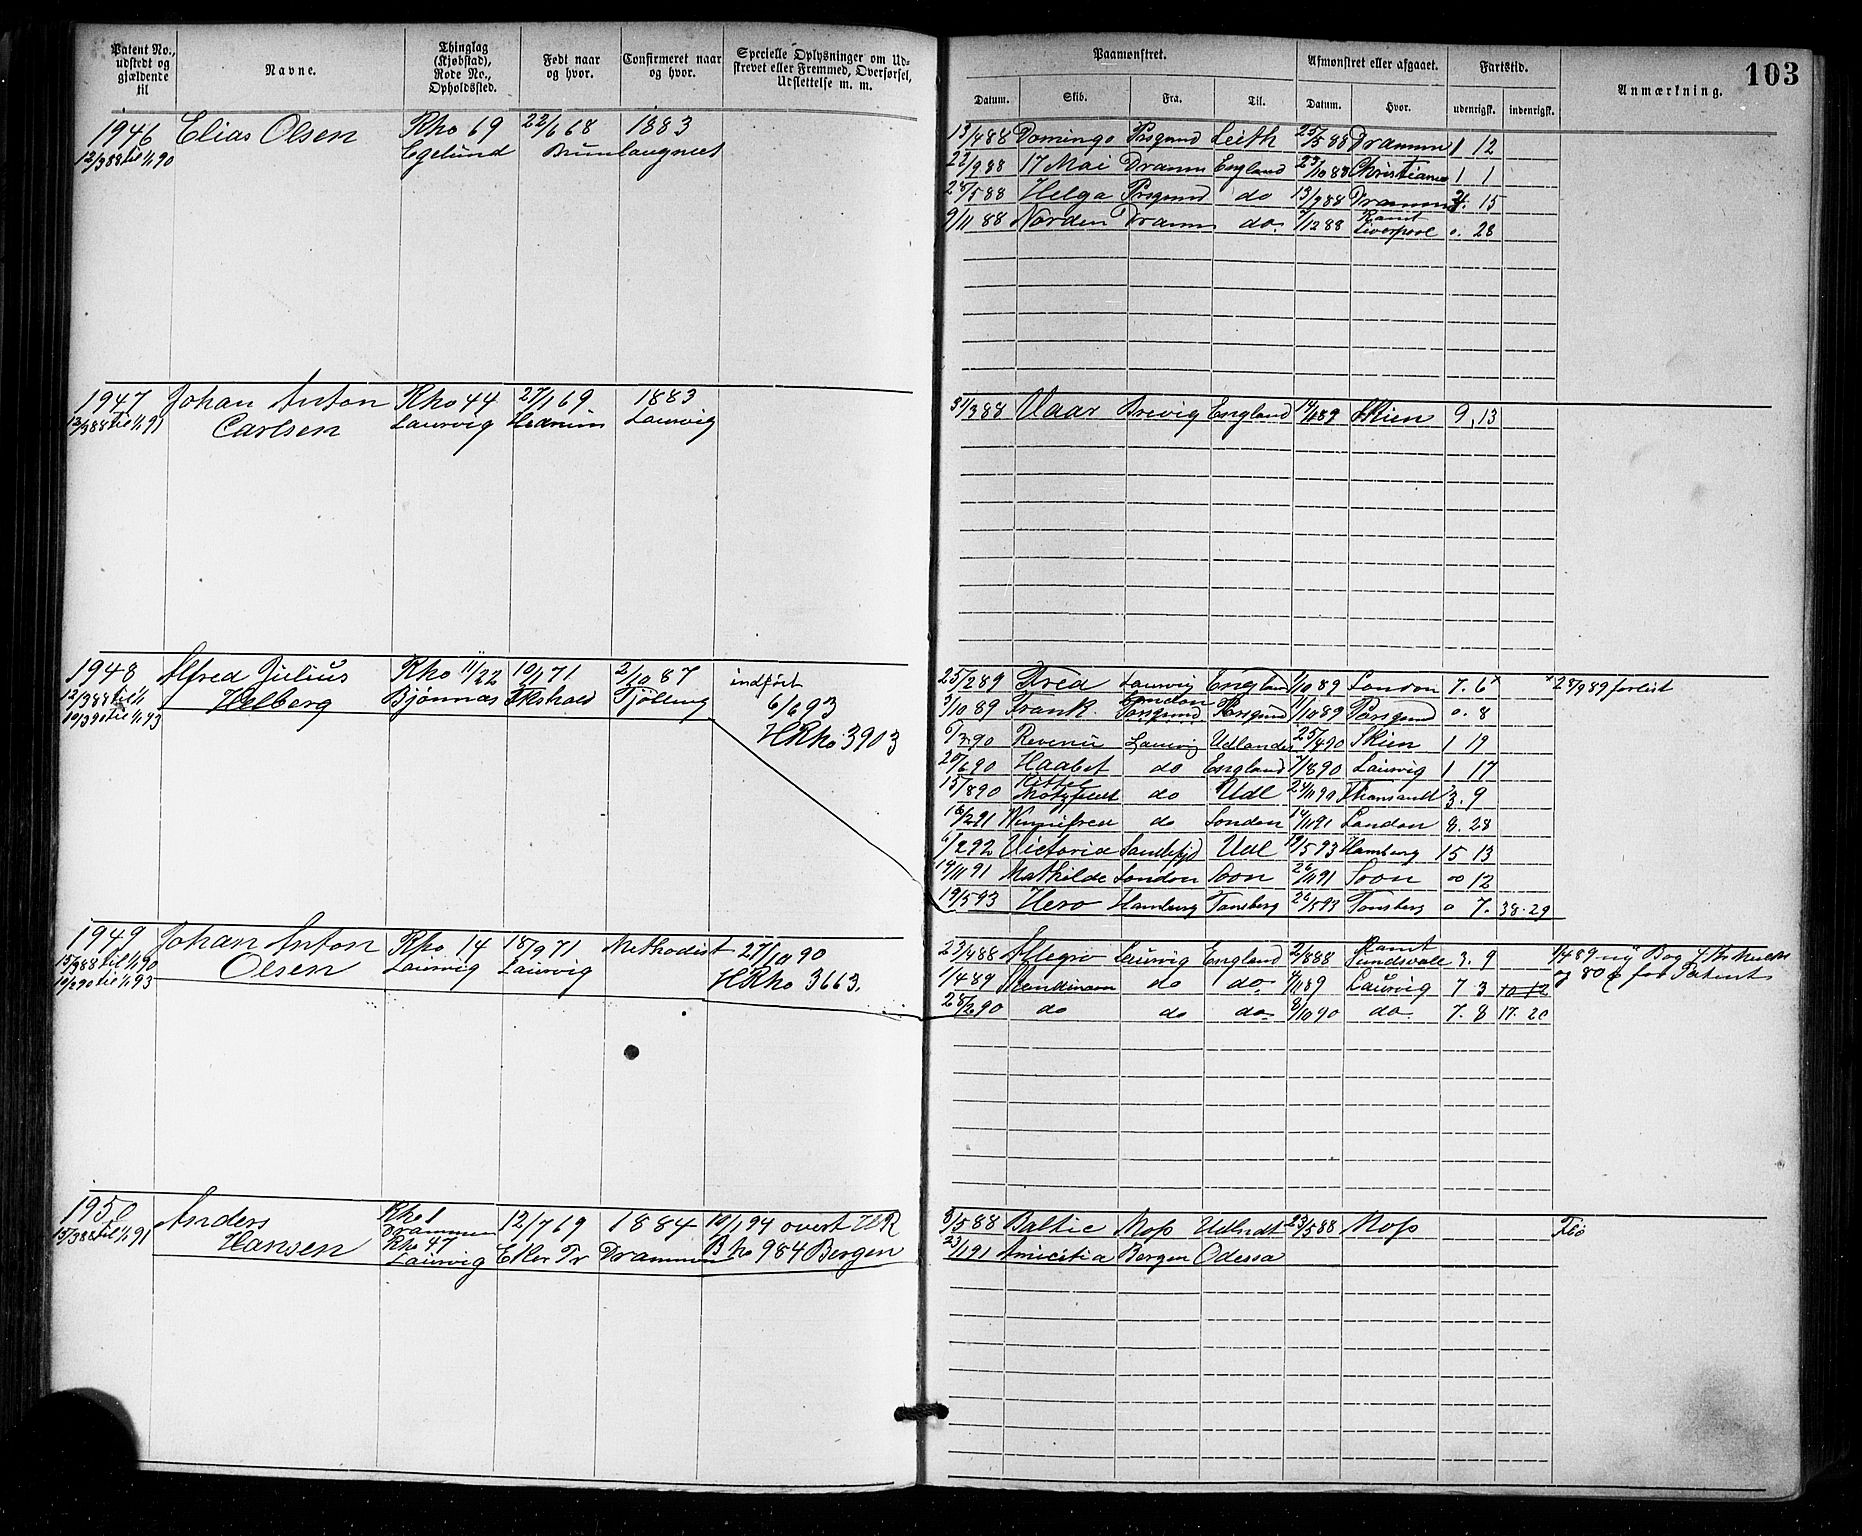 Patent No., udstedt og gjældende til
Navne.
Thinglag (Kjøbstad), Rode No., Opholdssted.
Født naar og hvor.
Confirmeret naar og hvor.
Specielle Oplysninger om Udskrevet eller Fremmed, Overførsel, Udslettelse m. m.
Paamønstret.
Datum.
Skib.
Fra.
Til.
Afmønstret eller afgaaet.
Datum.
Hvor.
Fartstid.
udenrigsk.
indenrigsk.
Anmærkning.
103
1946 Elias Olsen Rho 69 22/6 68 1883
12/3 88 til 1/1 90 Egelund Brunlaugnæs
13/4 88 Domingo Porsgrund Leith 25/5 88 Drammen 1 12
22/9 88 17 Mai Dramm England 23/10 88 Christiania 1 1
28/5 88 Helga Porsgrund do 13/9 88 Drammen 15
9/11 88 Norden Dramm do. 7/12 88 Rømt Liverpool 0. 28
1947 Johan Anton Rho 44 27/1 69 1883
12/3 88 til 1/1 91 Carlsen Laurvig Hedrum Laurvig
31/3 88 Vaar Brevig England 14/1 89 Skien 9, 13
1948 Alfred Julius Rho 11/22 10/1 71 2/10 87 indført
12/3 88 til 1/1 Helberg Bjønnæs Tjølling 6/6 93
19/3 90 til 1/1 93 HRho 3903
25/2 89 Laurvig England 1/10 89 London 7. 6 x x 28/9 89 forlist
3/10 89 Frank. London Porsgrund Porsgrund 11/10 89 Porsgrund 0. 8
6/3 90 Revenu Laurvig Udlandet 25/4 90 Skien 1 19
20/6 90 Haabet do England 7/8 90 Laurvig 1 17
15/8 90 do Udl 24/11 90 3. 9
16/2 91 Winnifred do London 14/11 91 London 8. 28
6/2 92 Victoria Sandefjd Udl 19/5 93 Hamburg 15 13
19/11 91 Mathilde London Soon 26/11 91 Soon 00 12
19/5 93 Hero Hamburg Tønsberg 26/5 93 Tønsberg 0 7. 38. 29
1949 Johan Anton Rho 14 18/9 71 Methodist 27/10 90
15/3 88 til 1/1 90 Olsen Laurvig Laurvig HRho 3663.
19/2 90 til 1/1 93
23/4 88 Allegro Laurvig England 2/8 88 Rømt Sundsvall 3. 9 1/4 89 ny Bog
1/4 89 Skandinavn do do. 4/11 89 Laurvig 7 3 10 12 og 80 ø for Patent
28/2 90 do do do. 8/10 90 do. 7. 8 17. 20
1950 Anders Rho 1 Drammen 12/7 69 1884 18/1 94 overt HR
15/3 88 til 1/1 91 Hansen Rho 47 Laurvig Eker Pr Drammen B ho 984 Bergen
3/5 88 Baltic Moss Udlndt 23/5 88 Moss
23/1 91 Amicitia Bergen Odessa